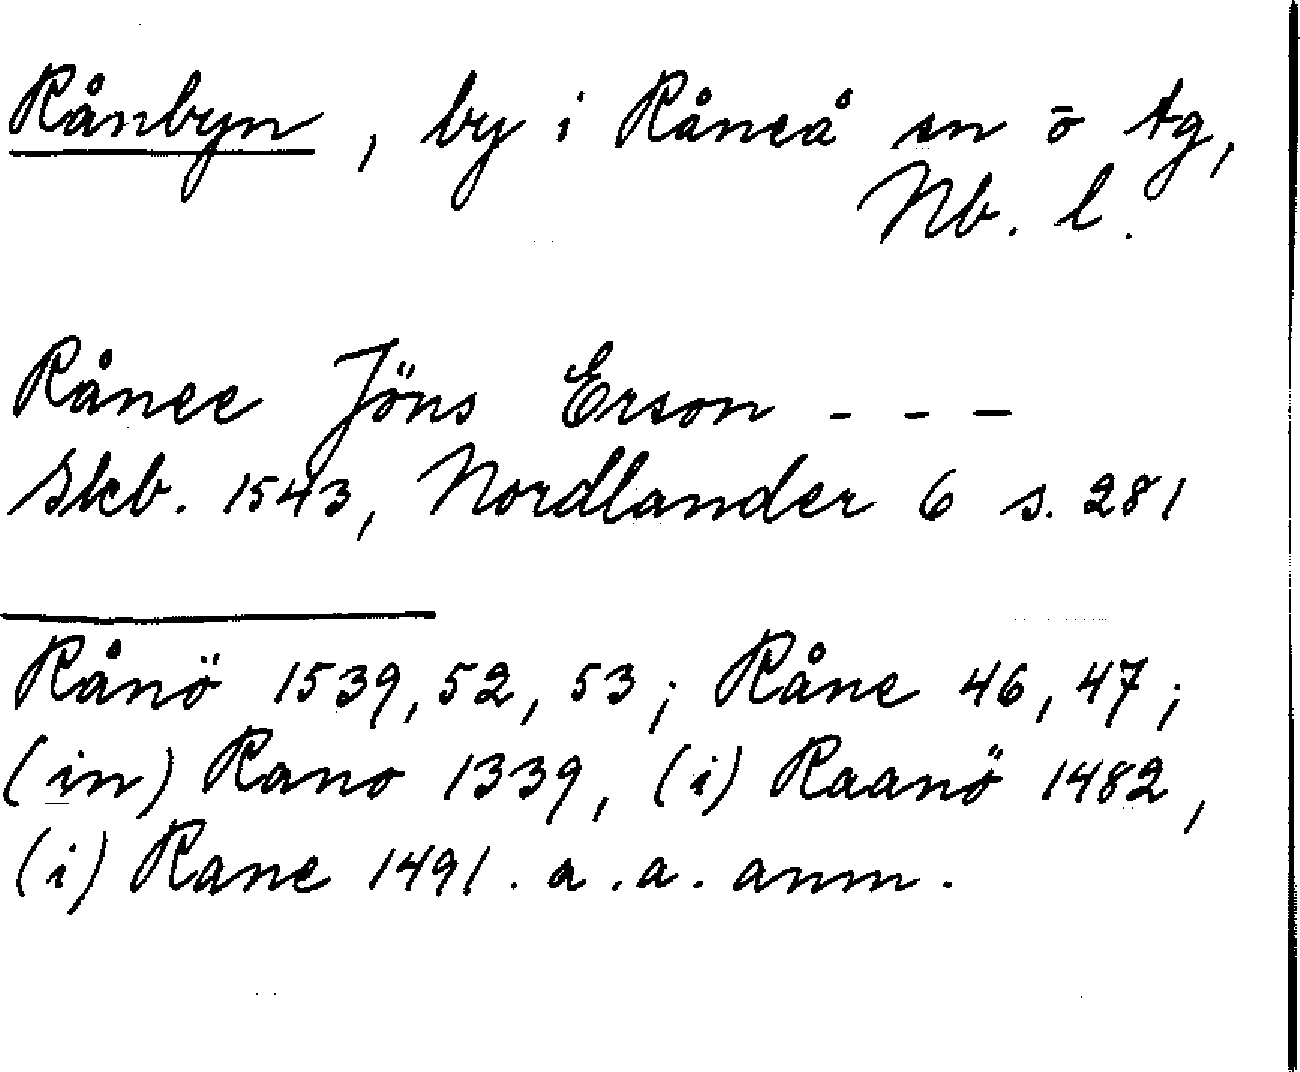 Rånbyn, by i Råneå sn ö tg,
Nb. l.
Rånee Jöns Erson - - -
Skb. 1543, Nordlander 6 s. 281
Rånö 1539, 52, 53; Råne 46, 47;
(in) Rano 1339, (i) Raanö 1482,
(i) Rane 1491. a.a. anm.